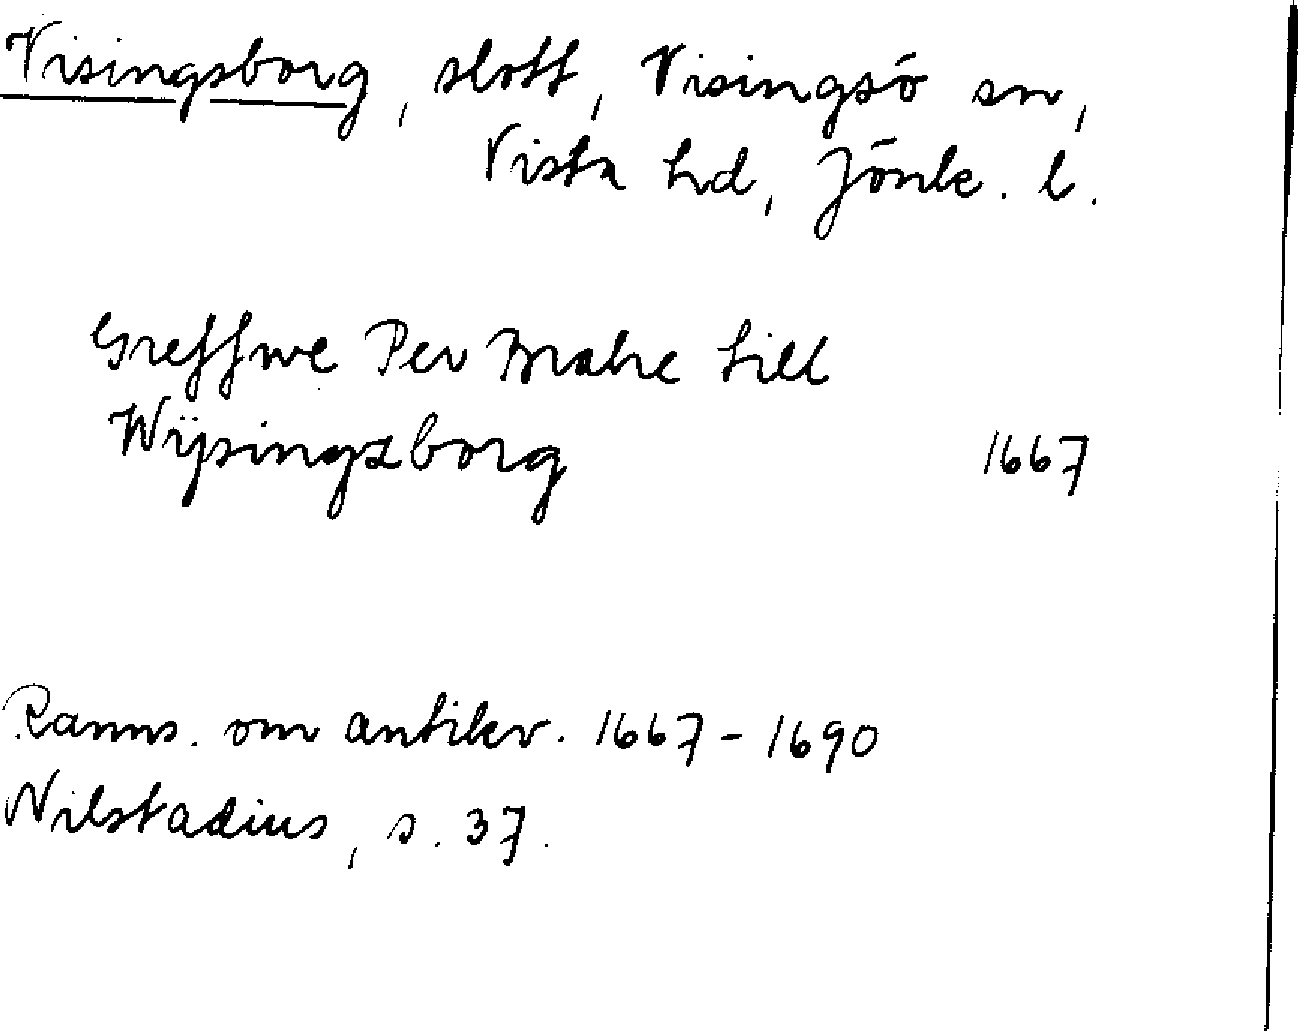 Visingsborg, slott, Visingsö sn,
Vista hd, Jönk. l.
Greffwe Per Brahe till
Wÿsingzborg 1667
Ranns. om antikv. 1667-1690
Nilstadius, s. 37.